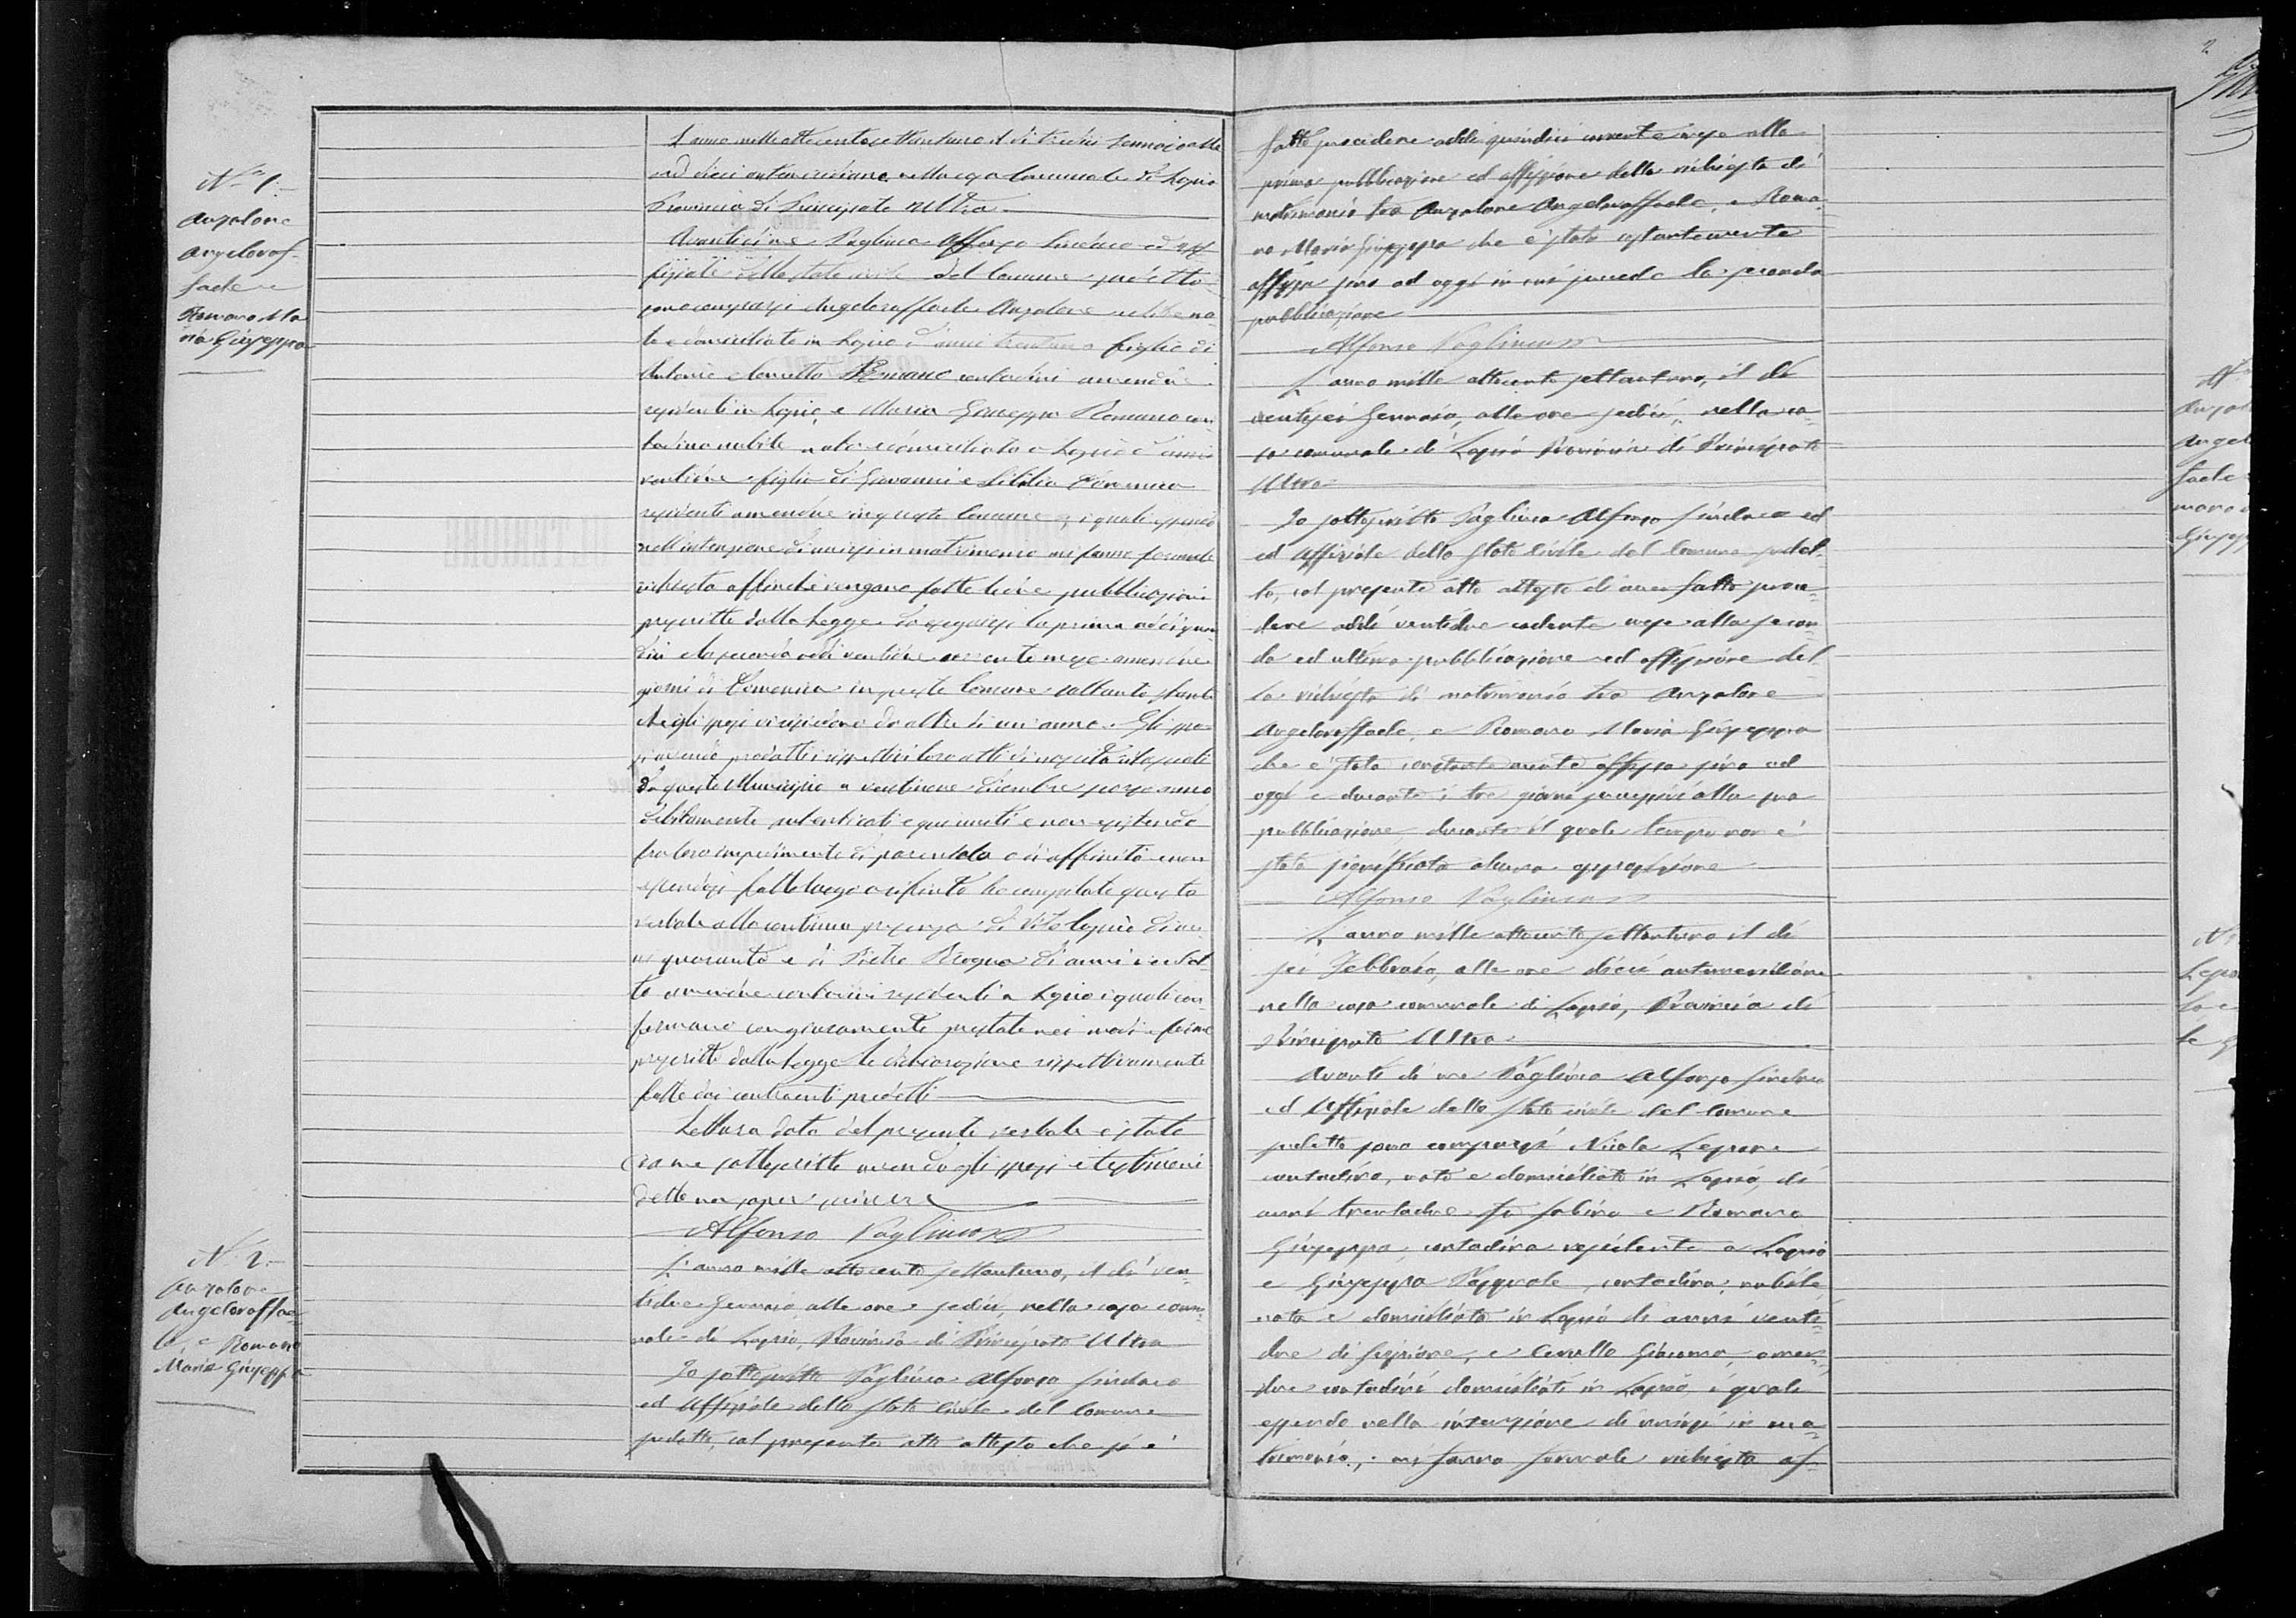 N. 1.
Anzalone
Angeloraf-
faele e
Romano Ma
ria Giuseppa
L'anno mille ottocentosettantuno il dì tredici Gennaio alle
ore dieci antimeridiane nella casa Comunale di Lapio
Provincia di Principato Ultra
Avanti di me Pagliuca Alfonso Sindaco ed Uf
fiziale dello stato civile del Comune predetto
sono comparsi Angeloraffaele Anzalone celibe na-
to e domiciliato in Lapio d'anni trentuno figlio di
Antonio e Carmella Romano contadini amendue
residenti in Lapio, e Maria Giuseppa Romano con
tadina nubile nata e domiciliata a Lapio d'anni
ventidue figlia di Giovanni e
residenti amendue in questo Comune, i quali essendo
nell'intenzione di unirsi in matrimonio mi fanno formale
richiesta affinché vengano fatte le due pubblicazioni
prescritte dalla Legge da eseguirsi la prima addì quin
dici e la seconda addì ventidue corrente mese amendue
giorni di Domenica in questo Comune soltanto stante
che gli sposi vi risiedono da oltre di un anno. Gli spo-
si avendo prodotti i rispettivi loro atti di nascita rilasciati
da questo Municipio a ventinove Dicembre scorso anno
debitamente autenticati e qui uniti e non esistendo
fra loro impedimento di parentela o di affinità e non
essendosi fatto luogo a rifiuto ho compilato questo
verbale alla continua presenza di Vito d'an
ni quaranta e di Pietro d'anni
to amendue contadini residenti a Lapio i quali con
fermano con giuramento prestato nei modi e forme
prescritte dalla Legge le dichiarazione rispettivamente
fatte dai contraenti predetti
Lettura data del presente verbale è stato
da me sottoscritto avendo gli sposi e testimoni
detto non saper scrivere
Alfonso Pagliuca
N. 2.
Anzalone
Angeloraffae-
le, e Romano
Maria Giuseppa
L'anno mille ottocento settantuno, il dì ven-
tidue Gennaio alle ore sedici, nella casa comu
nale di Lapio, Provincia di Principato Ultra
Io sottoscritto Pagliuca Alfonso Sindaco
ed Uffiziale dello Stato Civile del Comune
sudetto, col presente atto attesto che si è
2
fatto procedere addì quindici corrente mese alla
prima pubblicazione ed affissione della richiesta di
matrimonio tra Anzalone Angeloraffaele, e Roma-
no Maria Giuseppa che è stata costantemente
affissa sino ad oggi in cui succede la seconda
pubblicazione
Alfonso Pagliuca
L'anno mille ottocento settantuno, il dì
ventisei Gennaio, alle ore sedici, nella ca-
sa comunale di Lapio Provincia di Principato
Ultra
Io sottoscritto Pagliuca Alfonso Sindaco ed
ed Uffiziale dello Stato Civile del Comune sudet-
to, col presente atto attesto di aver fatto proce-
dere addì ventidue cadente mese alla secon-
da ed ultima pubblicazione ed affissione del-
la richiesta di matrimonio tra Anzalone
Angeloraffaele, e Romano Maria Giuseppa
che è stata costantemente affissa sino ad
oggi e durante i tre giorni successivi alla sua
pubblicazione durante il quale tempo non è
stata significata alcuna opposizione
Alfonso Pagliuca
L'anno mille ottocento settantuno il dì
sei Febbraio, alle ore dieci antimeridiane
nella casa comunale di Lapio, Provincia di
Principato Ultra
Avanti di me Pagliuca Alfonso Sindaco
ed Uffiziale dello Stato civile del comune
sudetto sono comparsi Nicola Lepore
contadino, nato e domiciliato in Lapio, di
anni trentadue fu Sabino e Romano
Giuseppa, contadina residente a Lapio
e Giuseppa Pasquale, contadina, nubile,
nata e domiciliata in Lapio di anni venti-
due di Scipione, e Giacoma, amen-
due contadini domiciliati in Lapio, i quali
essendo nella intenzione di unirsi in ma-
trimonio, mi fanno formale richiesta af-
N.
Anzal
Angel
faele
mano
Giusepp
N.
Lepo
la e
le G